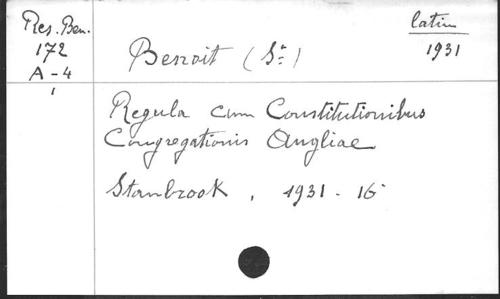 Res. Ben.
172
A-4
1
Benoit (St)
latin
1931
Regula cum Constitutionibus
Congregationis Angliae
Stanbrook, 1931 - 16°